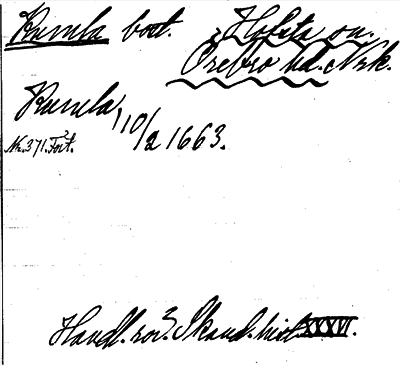 Kumla bost. Hofsta sn.
Örebro hd. Nrk.
Kumla 10/2 1663.
Nr. 371. Fört.
Handl. rör. Skand. hist XXXVI.